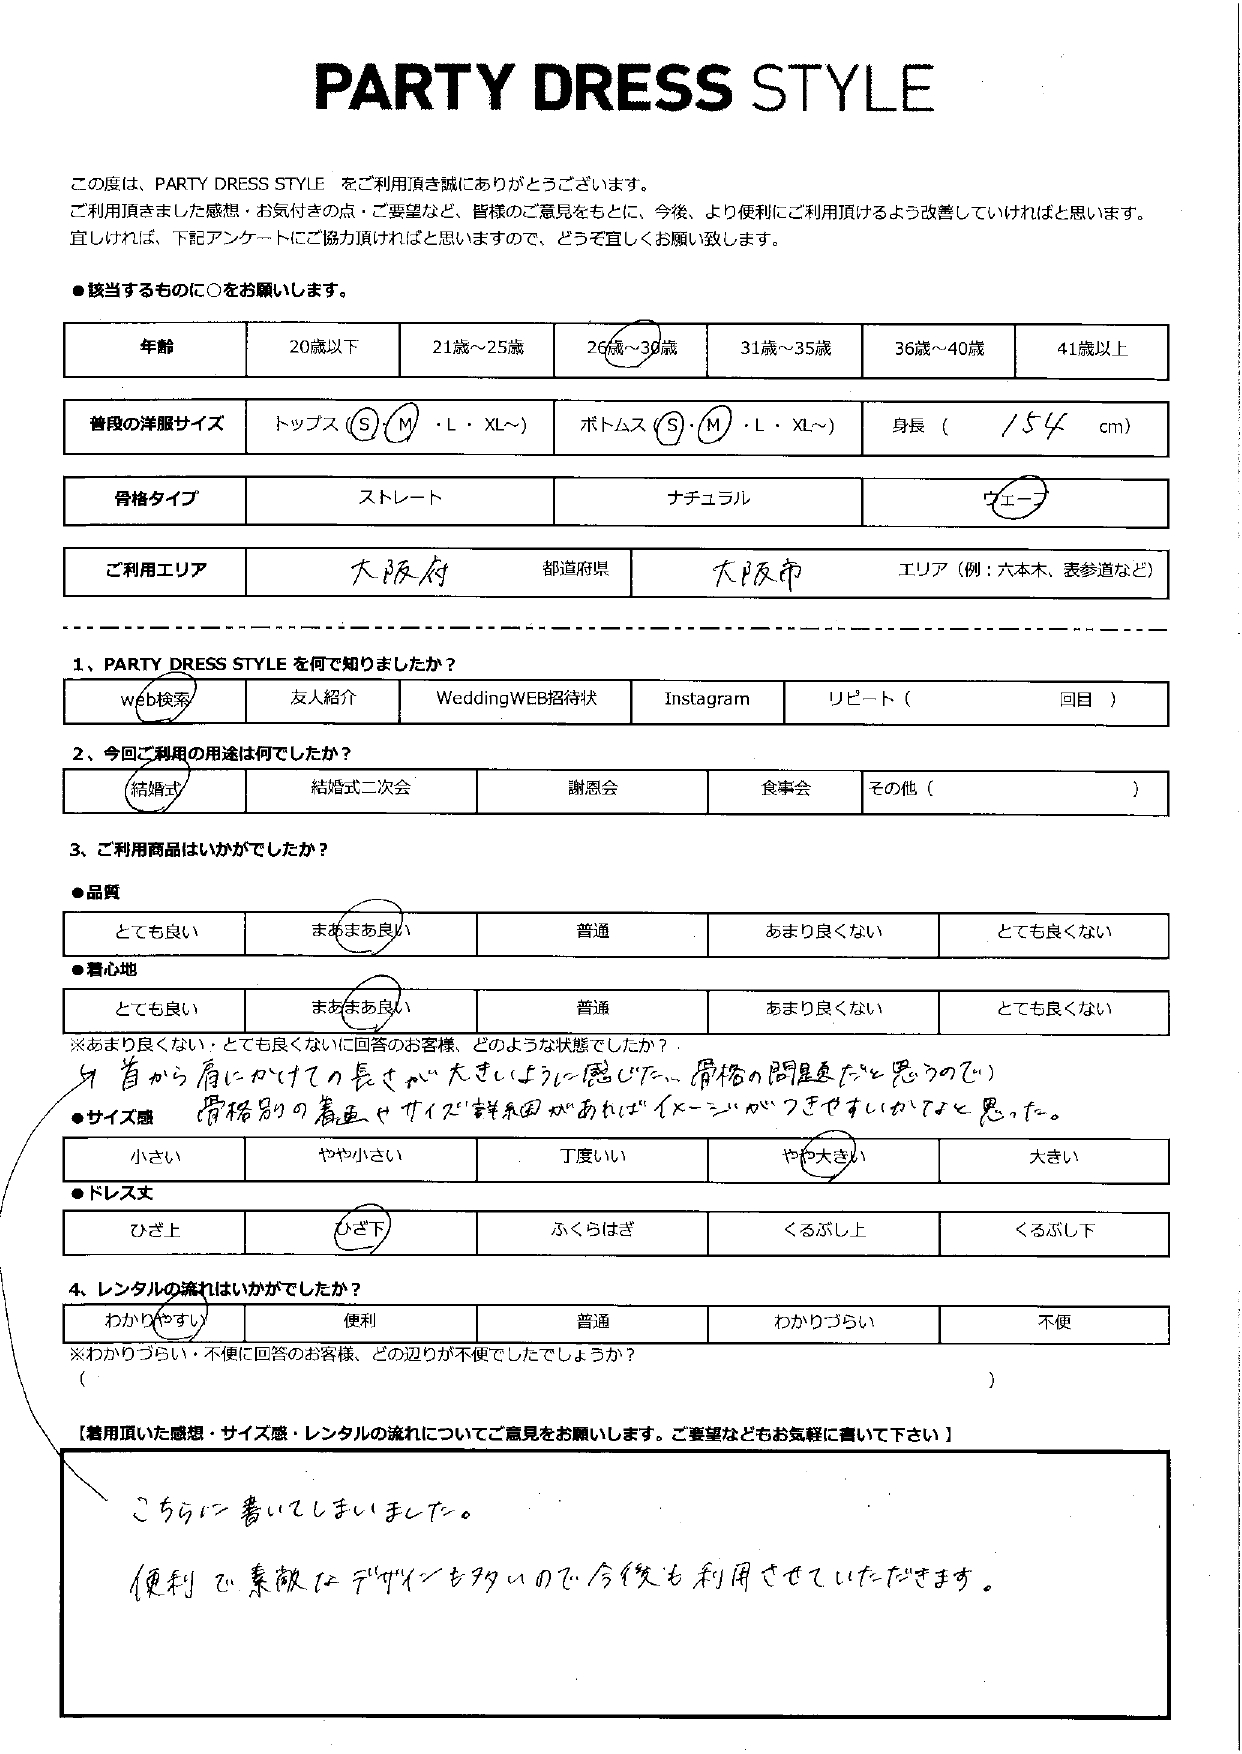 PARTY DRESS STYLE
この度は、PARTY DRESS STYLE をご利用頂き誠にありがとうございます。
ご利用頂きました感想・お気付きの点・ご要望など、皆様のご意見をもとに、今後、より便利にご利用頂けるよう改善していければと思います。
宜しければ、下記アンケートにご協力頂ければと思いますので、どうぞ宜しくお願い致します。
●該当するものに○をお願いします。
年齢 20歳以下 21歳～25歳 26歳～30歳 31歳～35歳 36歳～40歳 41歳以上
普段の洋服サイズ トップス（S・M ・L ・ XL～） ボトムス（S・M ・L ・ XL～） 身長 （ 154 cm）
骨格タイプ ストレート ナチュラル ウェーブ
ご利用エリア 大阪府 都道府県 大阪市 エリア（例：六本木、表参道など）
1、PARTY DRESS STYLE を何で知りましたか？
web検索 友人紹介 WeddingWEB招待状 Instagram リピート（ 回目 ）
2、今回ご利用の用途は何でしたか？
結婚式 結婚式二次会 謝恩会 食事会 その他（ ）
3、ご利用商品はいかがでしたか？
●品質
とても良い まあまあ良い 普通 あまり良くない とても良くない
●着心地
とても良い まあまあ良い 普通 あまり良くない とても良くない
※あまり良くない・とても良くないに回答のお客様、どのような状態でしたか？
首から肩にかけての長さが大きいように感じた… 骨格の問題だと思うので）
●サイズ感 骨格別の着画やサイズ詳細図があればイメージがつきやすいかなと思った。
小さい やや小さい 丁度いい やや大きい 大きい
●ドレス丈
ひざ上 ひざ下 ふくらはぎ くるぶし上 くるぶし下
4、レンタルの流れはいかがでしたか？
わかりやすい 便利 普通 わかりづらい 不便
※わかりづらい・不便に回答のお客様、どの辺りが不便でしたでしょうか？
（ ）
【着用頂いた感想・サイズ感・レンタルの流れについてご意見をお願いします。ご要望などもお気軽に書いて下さい 】
こちらに書いてしまいました。
便利で素敵なデザインも多いので今後も利用させていただきます。